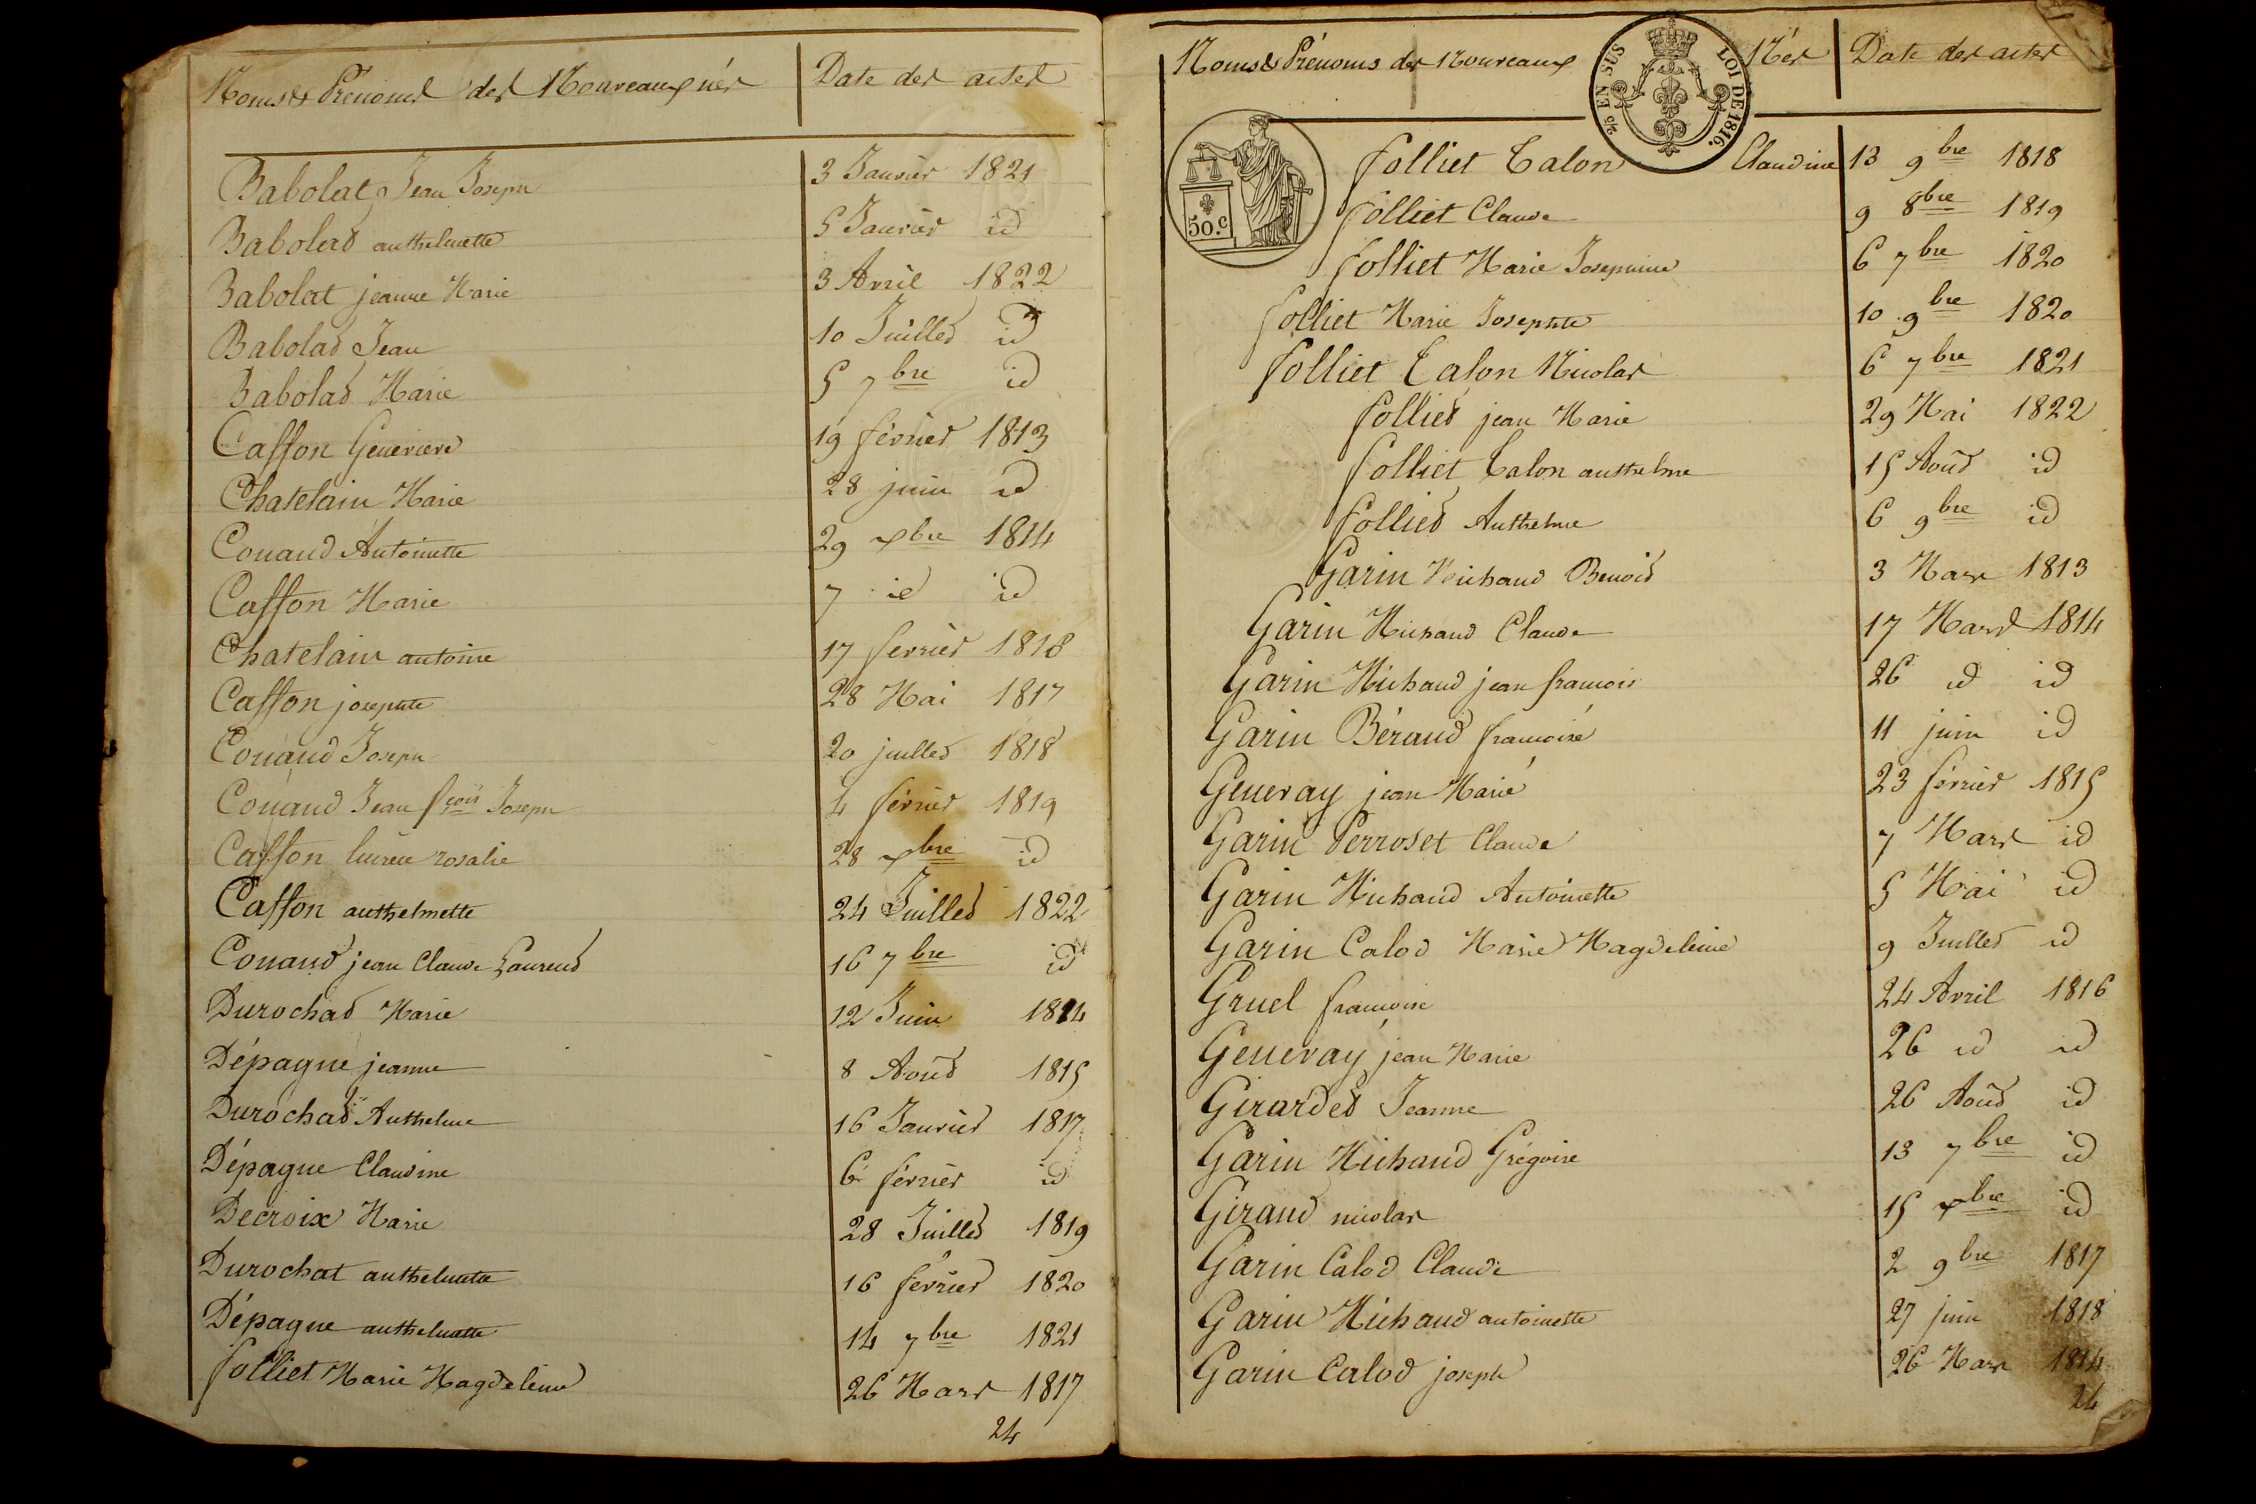 Noms & Prénoms des Nouveaux nés Date des actes
Babolat Jean Joseph 3 Janvier 1821
Babolat anthelmette 5 Janvier id
Babolat jeanne Marie 3 Avril 1822
Babolat Jean 10 Juillet id
Babolat Marie 5 7bre id
Caffon Genevieve 19 février 1813
Chatelain Marie 28 juin id
Couaud Antoinette 29 xbre 1814
Caffon Marie 7 id id
Chatelain antoine 17 fevrier 1818
Caffon josephte 28 Mai 1817
Couaud Joseph 20 juillet 1818
Couaud Jean fçois Joseph 4 février 1819
Caffon rosalie 28 xbre id
Caffon anthelmette 24 Juillet 1822
Couaud jean Claude Laurent 16 7bre id
Durochat Marie 12 Juin 1814
Dépagne jeanne 8 Août 1815
Durochat Anthelme 16 Janvier 1817
Dépagne Claudine 6 février id
Decroix Marie 28 Juillet 1819
Durochat anthelmette 16 février 1820
Dépagne anthelmette 14 7bre 1821
folliet Marie Magdeleine 26 Mars 1817
24
Noms & Prénoms des Nouveaux Nés Date des actes
2/5 EN SUS LOI DE 1816.
50.c
folliet Talon Claudine 13 9bre 1818
folliet Claude 9 8bre 1819
folliet Marie Josephine 6 7bre 1820
folliet Marie Josephte 10 9bre 1820
folliet Talon Nicolas 6 7bre 1821
folliet jean Marie 29 Mai 1822
folliet Talon anthelme 15 Août id
folliet Anthelme 6 9bre id
Garin Michaud Benoit 3 Mars 1813
Garin Michaud Claude 17 Mars 1814
Garin Michaud jean francois 26 id id
Garin Béraud francoise 11 juin id
Generay jean Marie 23 février 1815
Garin Perroset Claude 7 Mars id
Garin Michaud Antoinette 5 Mai id
Garin Calod Marie Magdeleine 9 Juillet id
Gruel francoise 24 Avril 1816
Generay jean Marie 26 id id
Girardet Jeanne 26 Août id
Garin Michaud Grégoire 13 7bre id
Giraud nicolas 15 xbre id
Garin Calod Claude 2 9bre 1817
Garin Michaud antoinette 27 juin 1818
Garin Calod joseph 26 Mars 1814
24